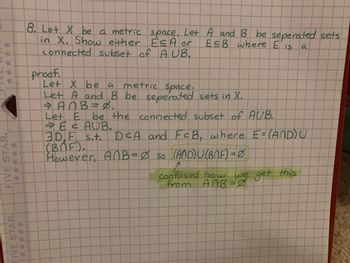 8. Let X be a metric space. Let A and B be seperated sets
in X. Show either E⊆A or E⊆B where E is a
connected subset of A∪B.
proof.
Let X be a metric space.
Let A and B be seperated sets in X.
⇒ A∩B = Ø.
Let E be the connected subset of A∪B.
⇒ E ⊂ A∪B.
∃D,F s.t. D⊂A and F⊂B, where E=(A∩D)∪
(B∩F).
However, A∩B=Ø so (A∩D)∪(B∩F)=Ø
confused how we get this
from A∩B=Ø
FIVE STAR.
FIVE STAR.